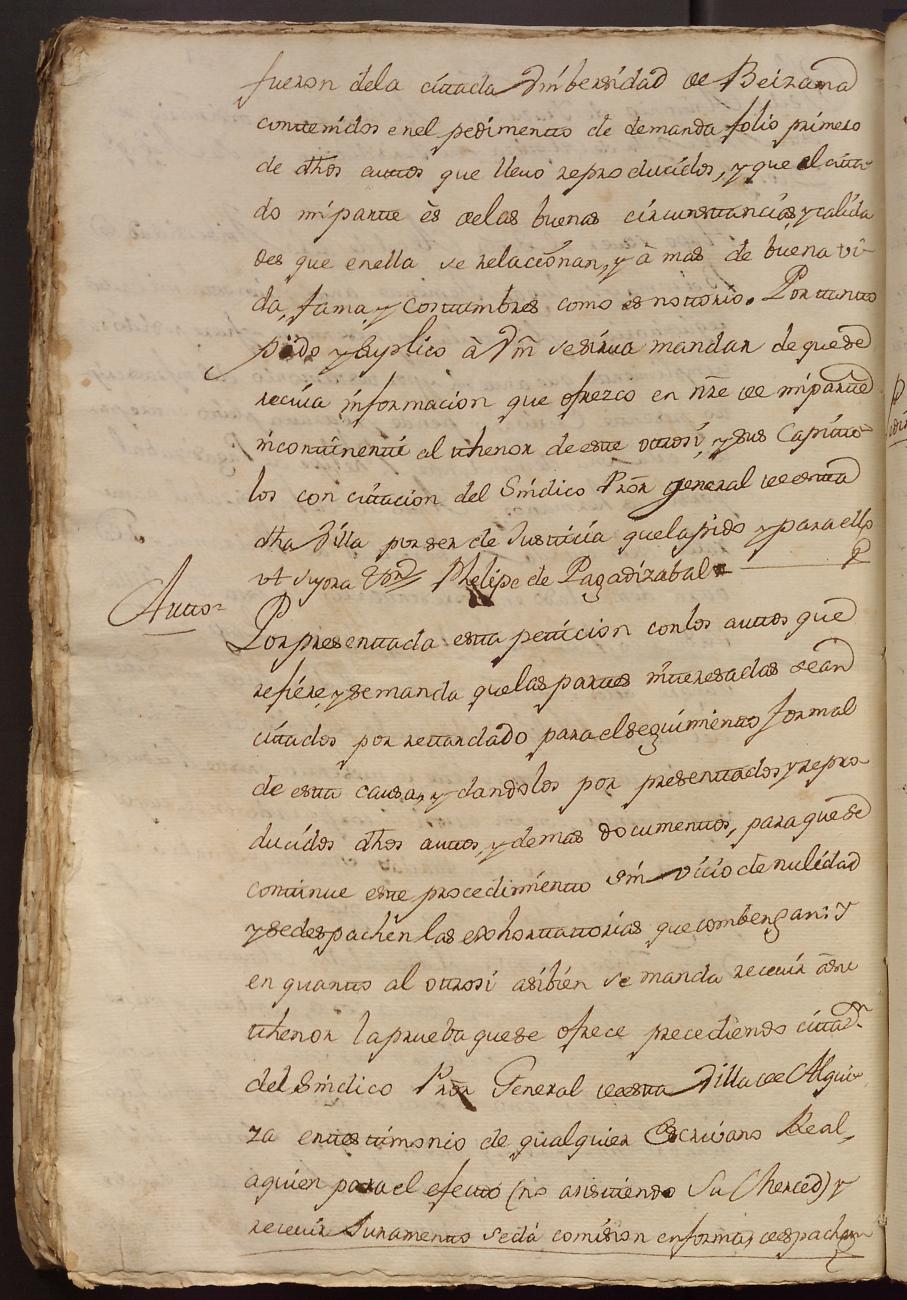 fueron dela cittada Vnibersidad de Beizama
conttenidos enel pedimentto de demanda folio primero
de dhos auttos que lleuo reproducidos, y que el citta-
do mi partte ès delas buenas circunsttancias, y calida
des que enella se relacionan, y à mas de buena vi-
da, fama, y Costtumbres como es nottorio. Por tantto
pido y Suplico à Vm̃ se sirua mandar de que se
reciua informacion que ofrezco en nr̃e de mi partte
incontinentti al thenor de estte ottrosi, y sus Capitto-
los con cittacion del Sindico Prõr general de estta
dha Villa por ser de Justticia que la pido y para ello
vt supra Phelipe de Pagadizabal
Autto
Por presenttada estta petticion con los auttos que
refiere, y se manda que las parttes intteresadas sean
cittados por rettardado para el seguimientto formal
de estta causa, y dandolos por presenttados y repro-
ducidos dhos auttos, y demas documenttos, para que se
conttinue estte procedimientto sin vicio de nulidad
y se despachen las exhorttattorias que combengan: Y
en quantto al ottrosi asibien se manda receuir à su
thenor la prueba que se ofrece precediendo citta.n
del Sindico Prõr General de estta Villa de Alqui-
za en testtimonio de qualquier Escriuano Real,
a quien para el efectto (no asisttiendo Su Merced) y
receuir Juramentto se dà comision en forma, y despachen